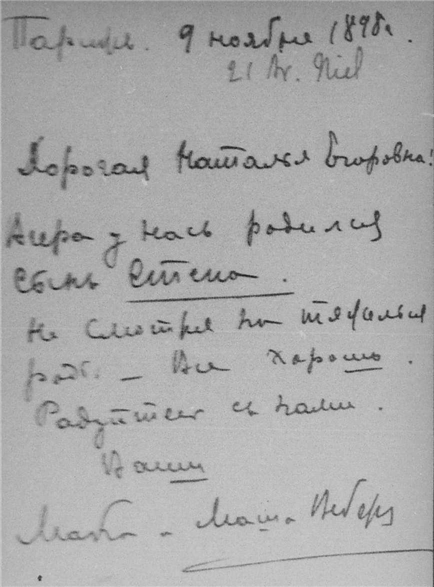 Парижъ. 9 ноября 1898 г.
21 Av. Niel
Дорогая Наталья Егоровна!
Вчера у насъ родился
сынъ Степа.
Не смотря на тяжелыя
роды — Все хорошо.
Радуйтесь съ нами.
Ваши
Маша